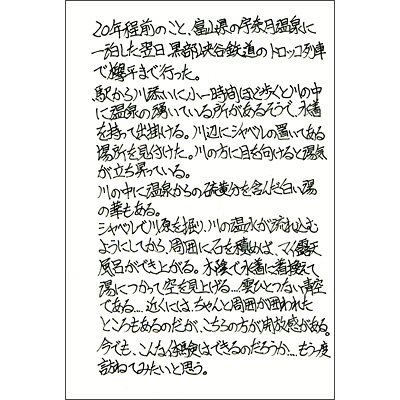 20年程前のこと、富山県の宇奈月温泉に
一泊した翌日 黒部峡谷鉄道のトロッコ列車
で欅平まで行った。
駅から川添いに、小一時間ほど歩くと川の中
に温泉の湧いている所があるそうで、水着
を持って出掛ける。川辺にシャベルの置いてある
場所を見付けた。川の方に目を向けると湯気
が立ち昇っている。
川の中に温泉からの硫黄分を含んだ白い湯
の華もある。
シャベルで川原を掘り、川の温水が流れ込む
ようにしてから、周囲に石を積めば、マイ露天
風呂ができ上がる。木陰で水着に着換えて
湯につかって空を見上げる…雲ひとつない青空
である…. 近くには、ちゃんと周囲が囲われた
ところもあるのだが、こちらの方が開放感がある。
今でも、こんな体験はできるのだろうか…. もう一度
訪ねてみたいと思う。